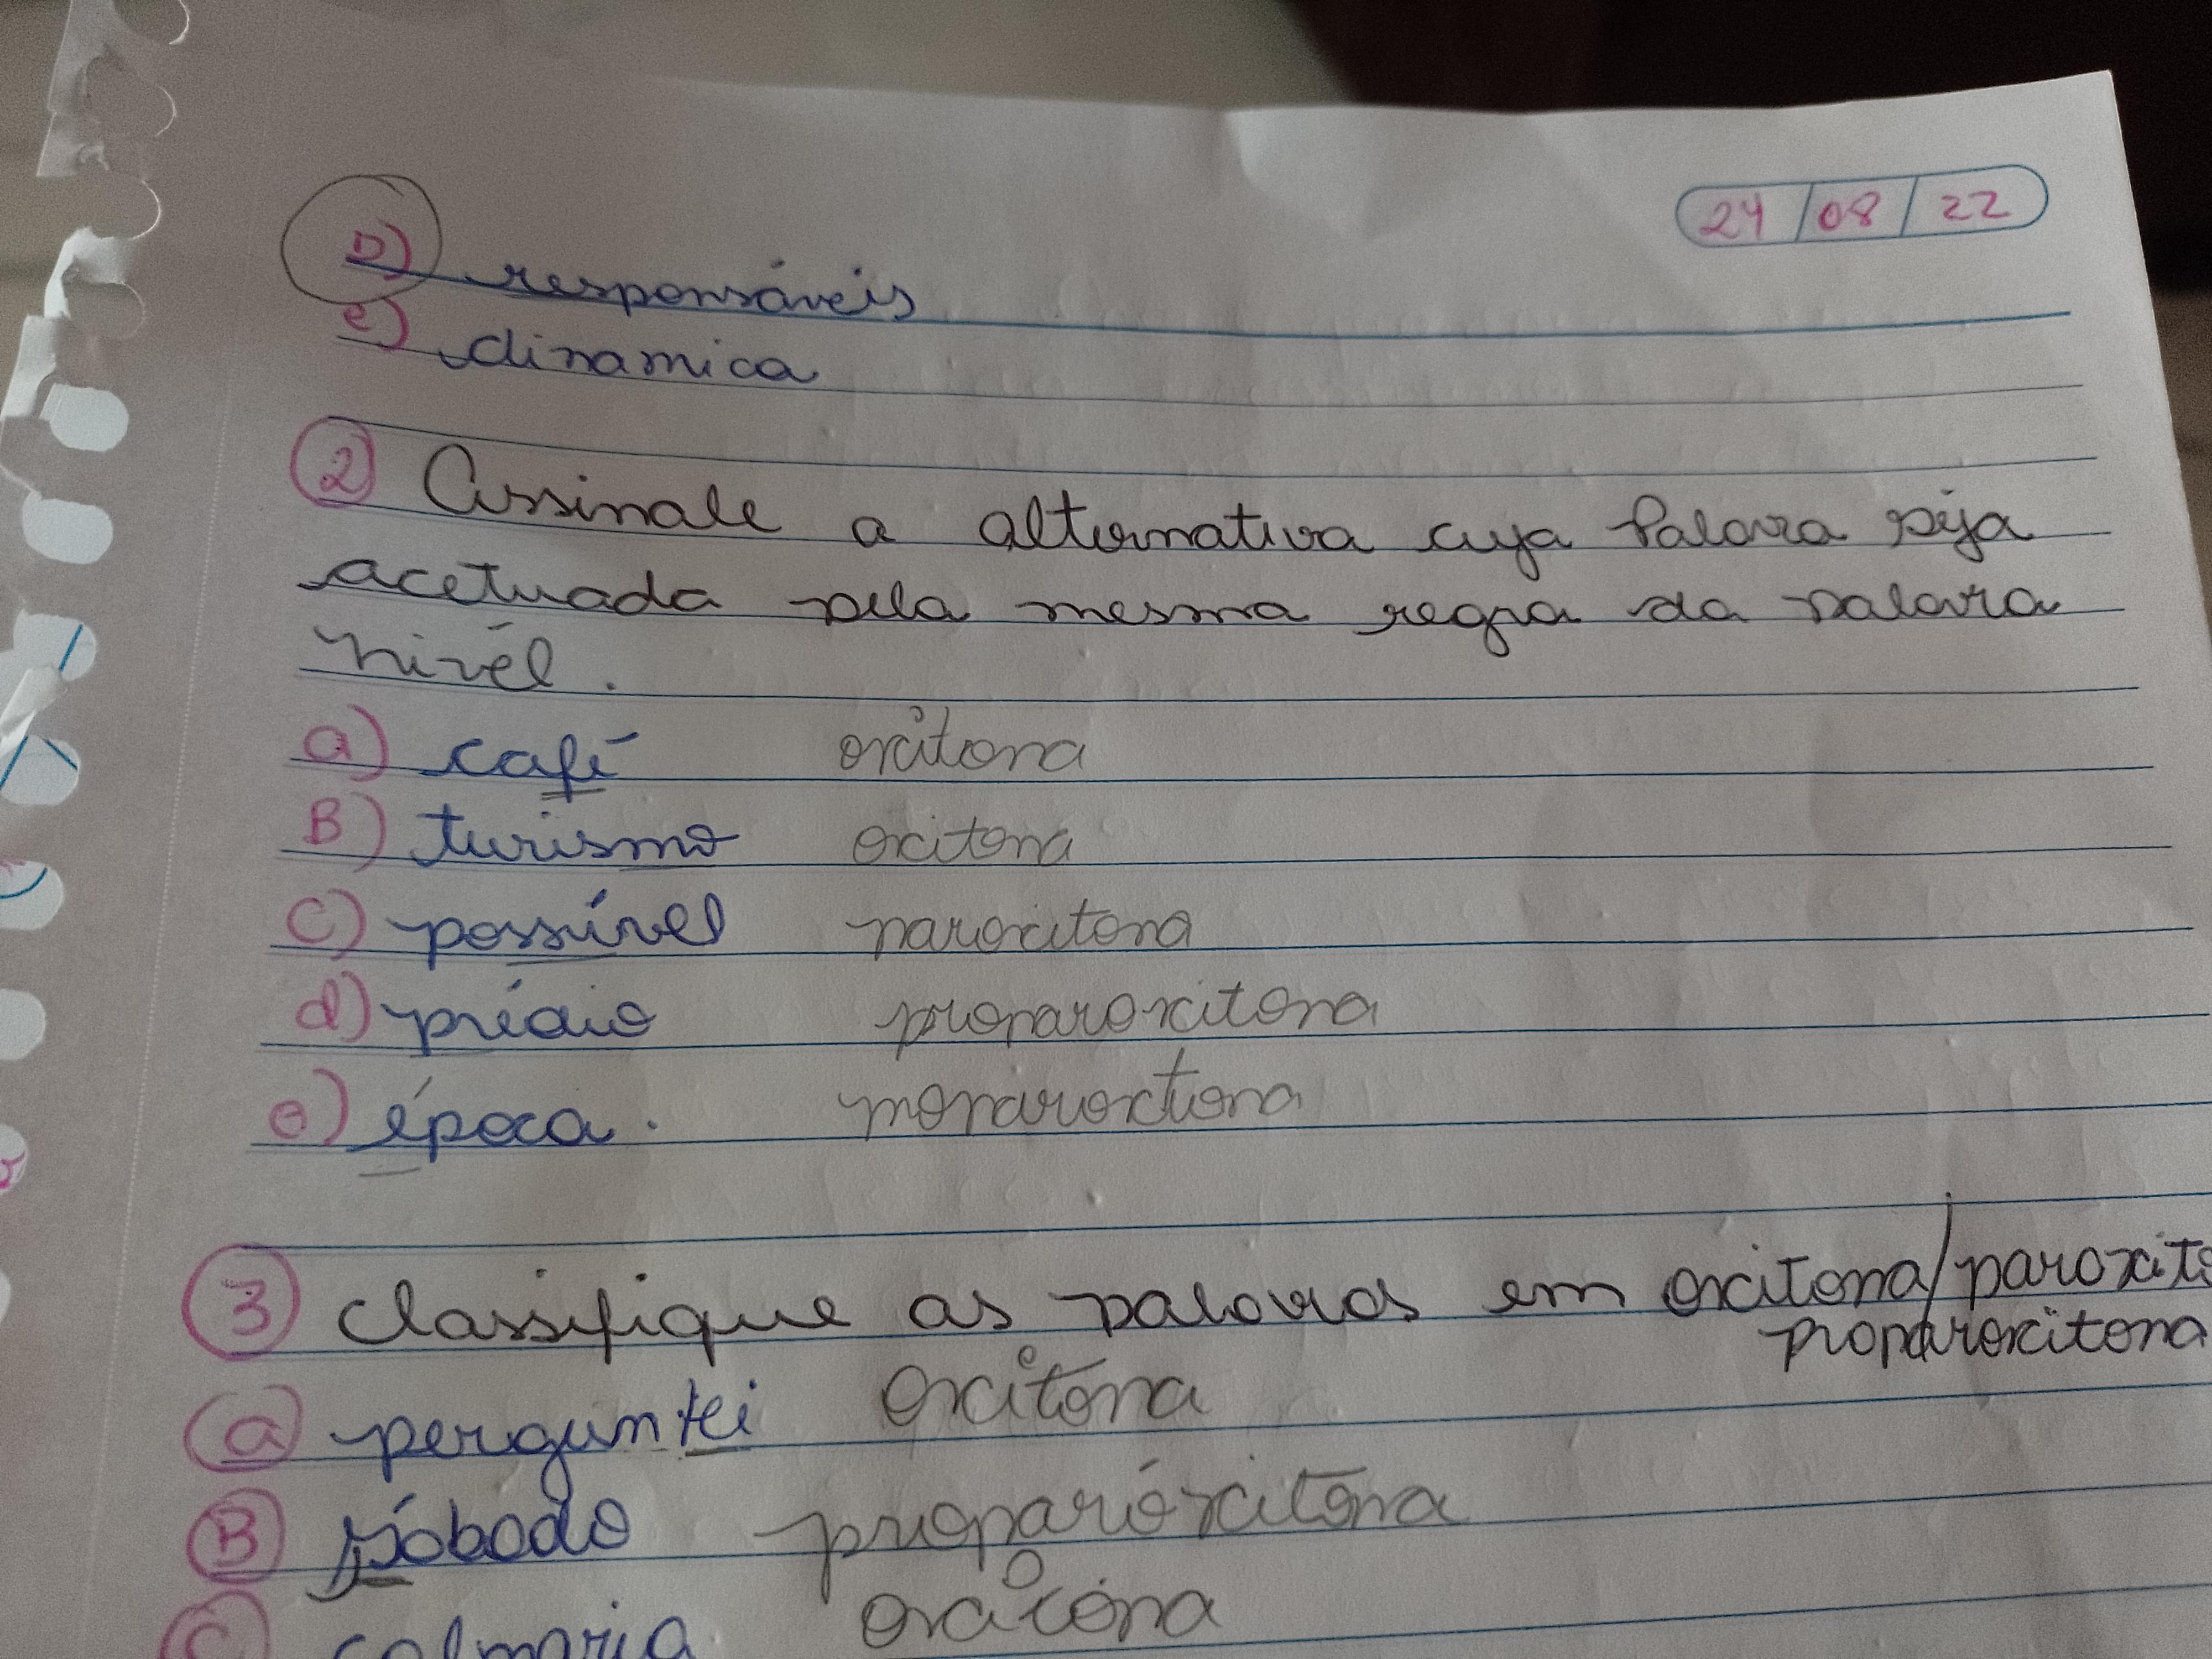 24/08/22
D) responsáveis
e) dinamica
2 Assinale a alternativa cuja Palavra seja
acetuada pela mesma regra da palavra
nivél.
a) café oxitona
B) turismo oxitona
C) possível paroxitona
d) prédio proparoxitona
e) época. moparoxtiona
3 Classifique as palavras em oxitona/paroxito
proparoxitona
a perguntei oxitona
B sábado proparóxitona
C calmaria oxitona